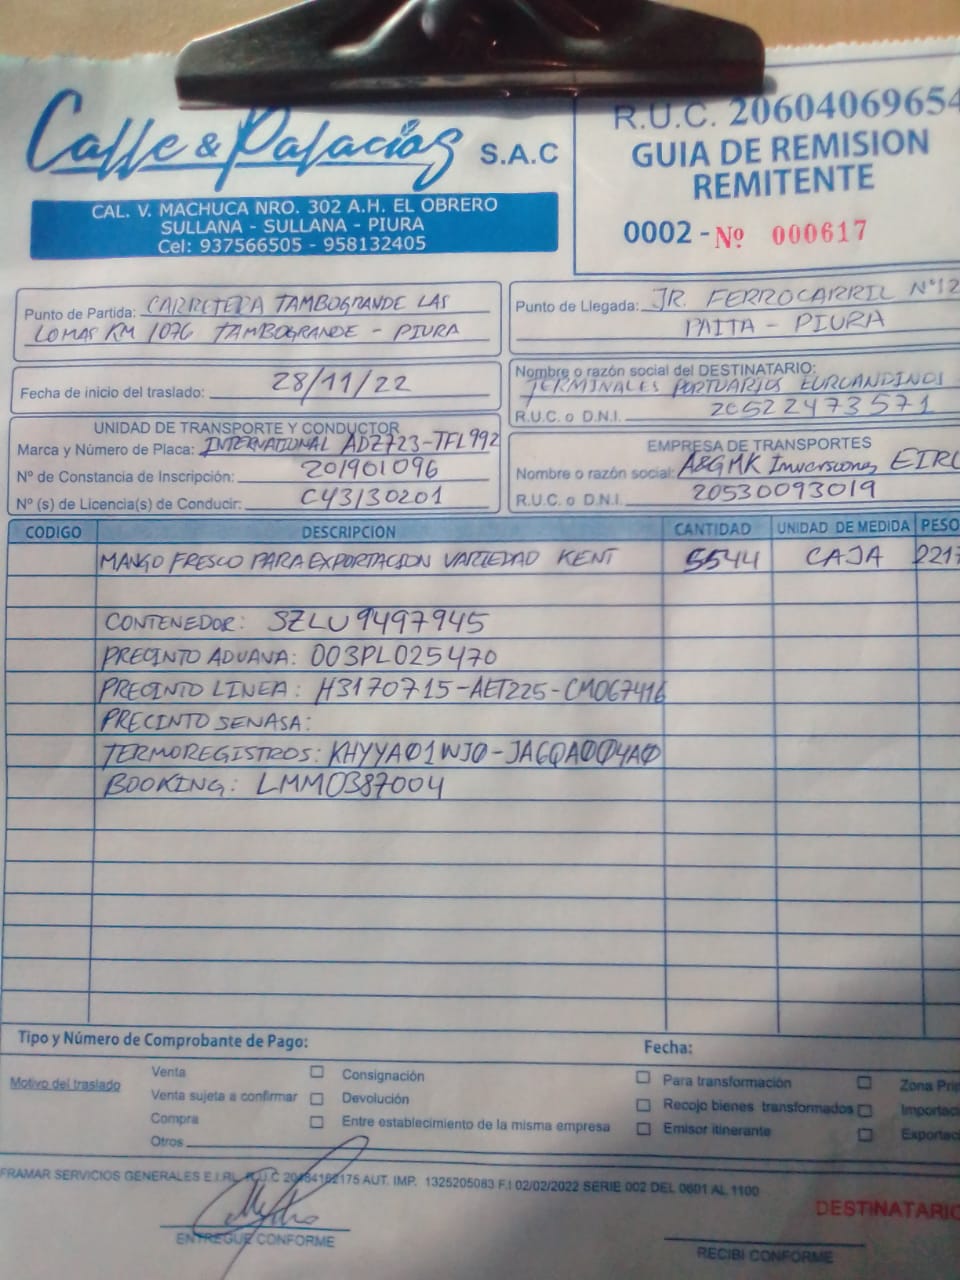 Calle & Palacios S.A.C
CAL. V. MACHUCA NRO. 302 A.H. EL OBRERO
SULLANA - SULLANA - PIURA
Cel: 937566505 - 958132405
R.U.C. 20604069654
GUIA DE REMISION
REMITENTE
0002 - Nº 000617
Punto de Partida: CARRETERA TAMBOGRANDE LAS
LOMAS KM 1076 TAMBOGRANDE - PIURA
Punto de Llegada: JR. FERROCARRIL Nº12
PAITA - PIURA
Fecha de inicio del traslado: 28/11/22
Nombre o razón social del DESTINATARIO:
TERMINALES PORTUARIOS EUROANDINOS
R.U.C. o D.N.I. 20522473571
UNIDAD DE TRANSPORTE Y CONDUCTOR
Marca y Número de Placa: INTERNATIONAL ADZ723-TFL992
Nº de Constancia de Inscripción: 201901096
Nº (s) de Licencia(s) de Conducir: C43130201
EMPRESA DE TRANSPORTES
Nombre o razón social: A&GMK Inversiones EIRL
R.U.C. o D.N.I. 20530093019
CODIGO DESCRIPCION CANTIDAD UNIDAD DE MEDIDA PESO
MANGO FRESCO PARA EXPORTACION VARIEDAD KENT 5544 CAJA 2217
CONTENEDOR: SZLU9497945
PRECINTO ADUANA: 003PL025470
PRECINTO LINEA: H3170715-AET225-CM067416
PRECINTO SENASA:
TERMOREGISTROS: KHYYA01WJ0-JA6QA004A0
BOOKING: LMM0387004
Tipo y Número de Comprobante de Pago:
Fecha:
Motivo del traslado
Venta
Venta sujeta a confirmar
Compra
Otros
Consignación
Devolución
Entre establecimiento de la misma empresa
Para transformación
Recojo bienes transformados
Emisor itinerante
Zona Pri
Importac
Exportac
FRAMAR SERVICIOS GENERALES E.I.RL. R.U.C 20484162175 AUT. IMP. 1325205083 F.I 02/02/2022 SERIE 002 DEL 0601 AL 1100
DESTINATARIO
ENTREGUE CONFORME
RECIBI CONFORME